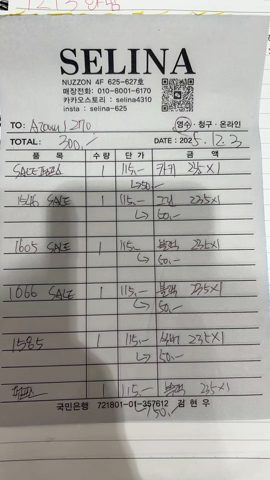 SELINA
NUZZON 4F 625-627호
매장전화: 010-8001-6170
카카오스토리 : selina4310
insta : selina-625
TO: 270
영수 · 청구 · 온라인
TOTAL: 300,-
DATE : 2025. 12. 3
품 목 수 량 단 가 금 액
SALE 1 115,- 카키 235X1
50,-
1546 SALE 1 115,- 235X1
50,-
1605 SALE 1 115,- 블랙 235X1
50,-
1066 SALE 1 115,- 블랙 235X1
50,-
1585 1 115,- 235X1
50,-
1 115,- 블랙 235X1
50,-
국민은행 721801-01-357612 김 현 우